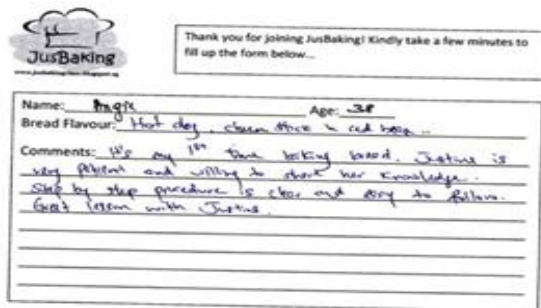 JusBaking
Thank you for joining JusBaking! Kindly take a few minutes to
fill up the form below...
Name: Angie Age: 38
Bread Flavour: Hot dog, cheese stick n red bean
Comments: It's my 1st time baking bread. Justina is
very patient and willing to share her knowledge.
Step by step procedure is clear and easy to follow.
Great lesson with Justina.